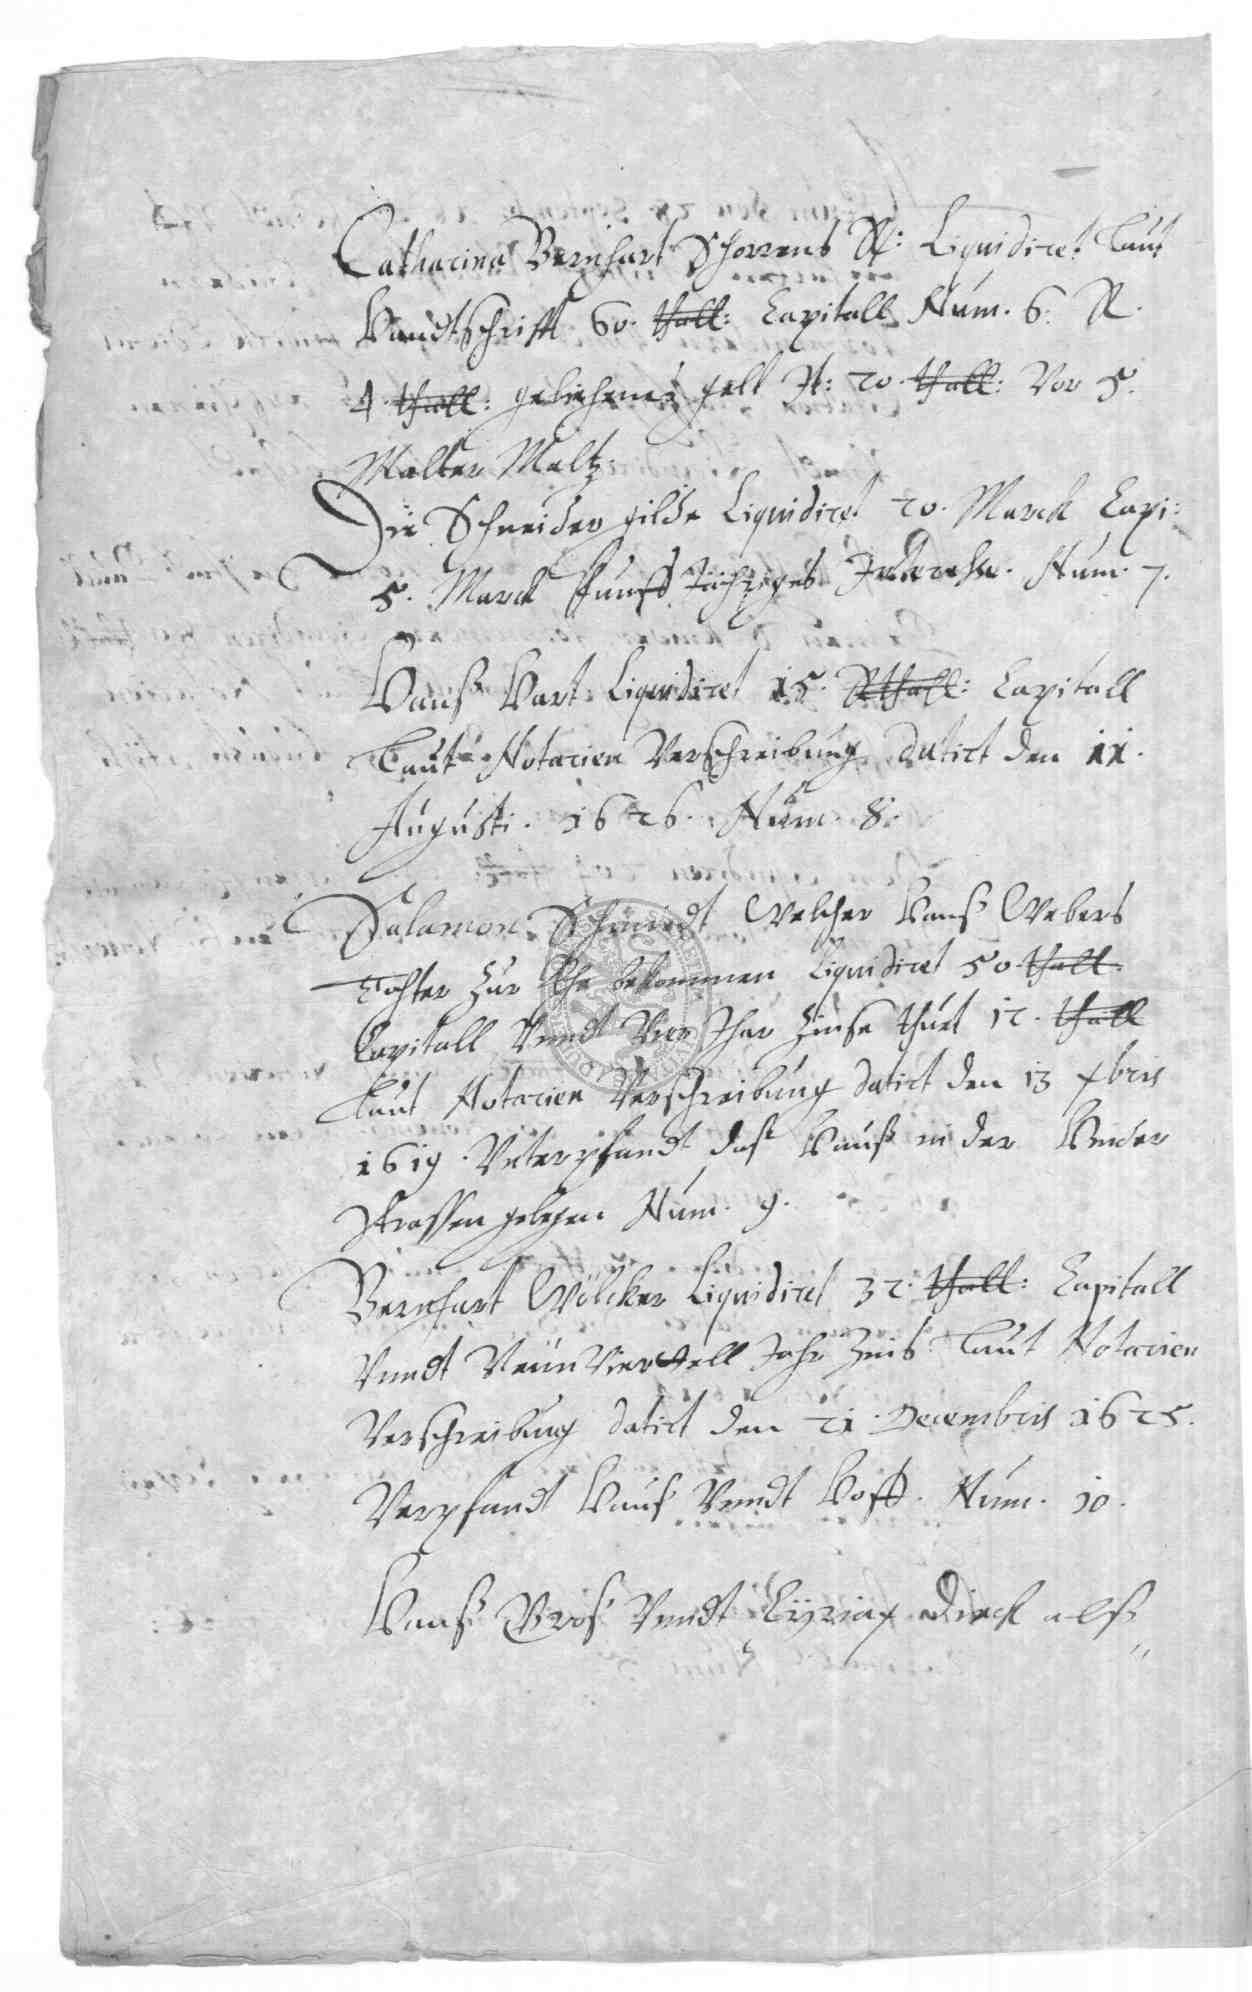 Catharina Bernhart Schorrens R: Liquidiret laut
Handtschrifft 60. thall: Capitall Num. 6. R.
4 thall: geliehenes gelt It: 20 thall: Vor 5.
Malter Maltz.
Die Schneider gilde Liquidiret 20. Marck Capi:
5. Marck funff Jähriges Interesse. Num. 7.
Hanß Hart Liquidiret 15. Rthall: Capitall
Laut Notarien Verschreibung datirt den 11.
Augusti. 1626. Num. 8.
Salamon Schmiedt Welcher Hanß Webers
Tochter Zur Ehe bekommen Liquidiret 50 thall.
Capitall Vnndt Vier Jhar Zinse thutt 12. thall
Laut Notarien Verschreibung datirt den 13 xbris
1619. Vnterpfandt daß Hauß in der
Strassen gelegen Num. 9.
Bernhart Wölcker Liquidiret 32. thall: Capitall
Vnndt Neun Viertell Jahr Zins Laut Notarien
Verschreibung datirt den 21. Decembris 1625.
Verpfandt Hauß Vnndt Hoff. Num. 10.
Hanß Groß Vnndt Cyriax Dirck alß